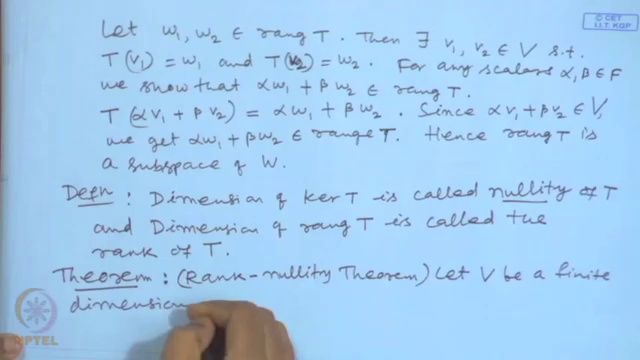 © CET
I.I.T. KGP
Let w₁, w₂ ∈ rang T. Then ∃ v₁, v₂ ∈ V s.t.
T(v₁) = w₁ and T(v₂) = w₂. For any scalars α, β ∈ F
we show that αw₁ + βw₂ ∈ rang T.
T(αv₁ + βv₂) = αw₁ + βw₂. Since αv₁ + βv₂ ∈ V,
we get αw₁ + βw₂ ∈ range T. Hence rang T is
a subspace of W.
Defn: Dimension of ker T is called nullity of T
and Dimension of rang T is called the
rank of T.
Theorem: (Rank-nullity Theorem) Let V be a finite
dimension
NPTEL